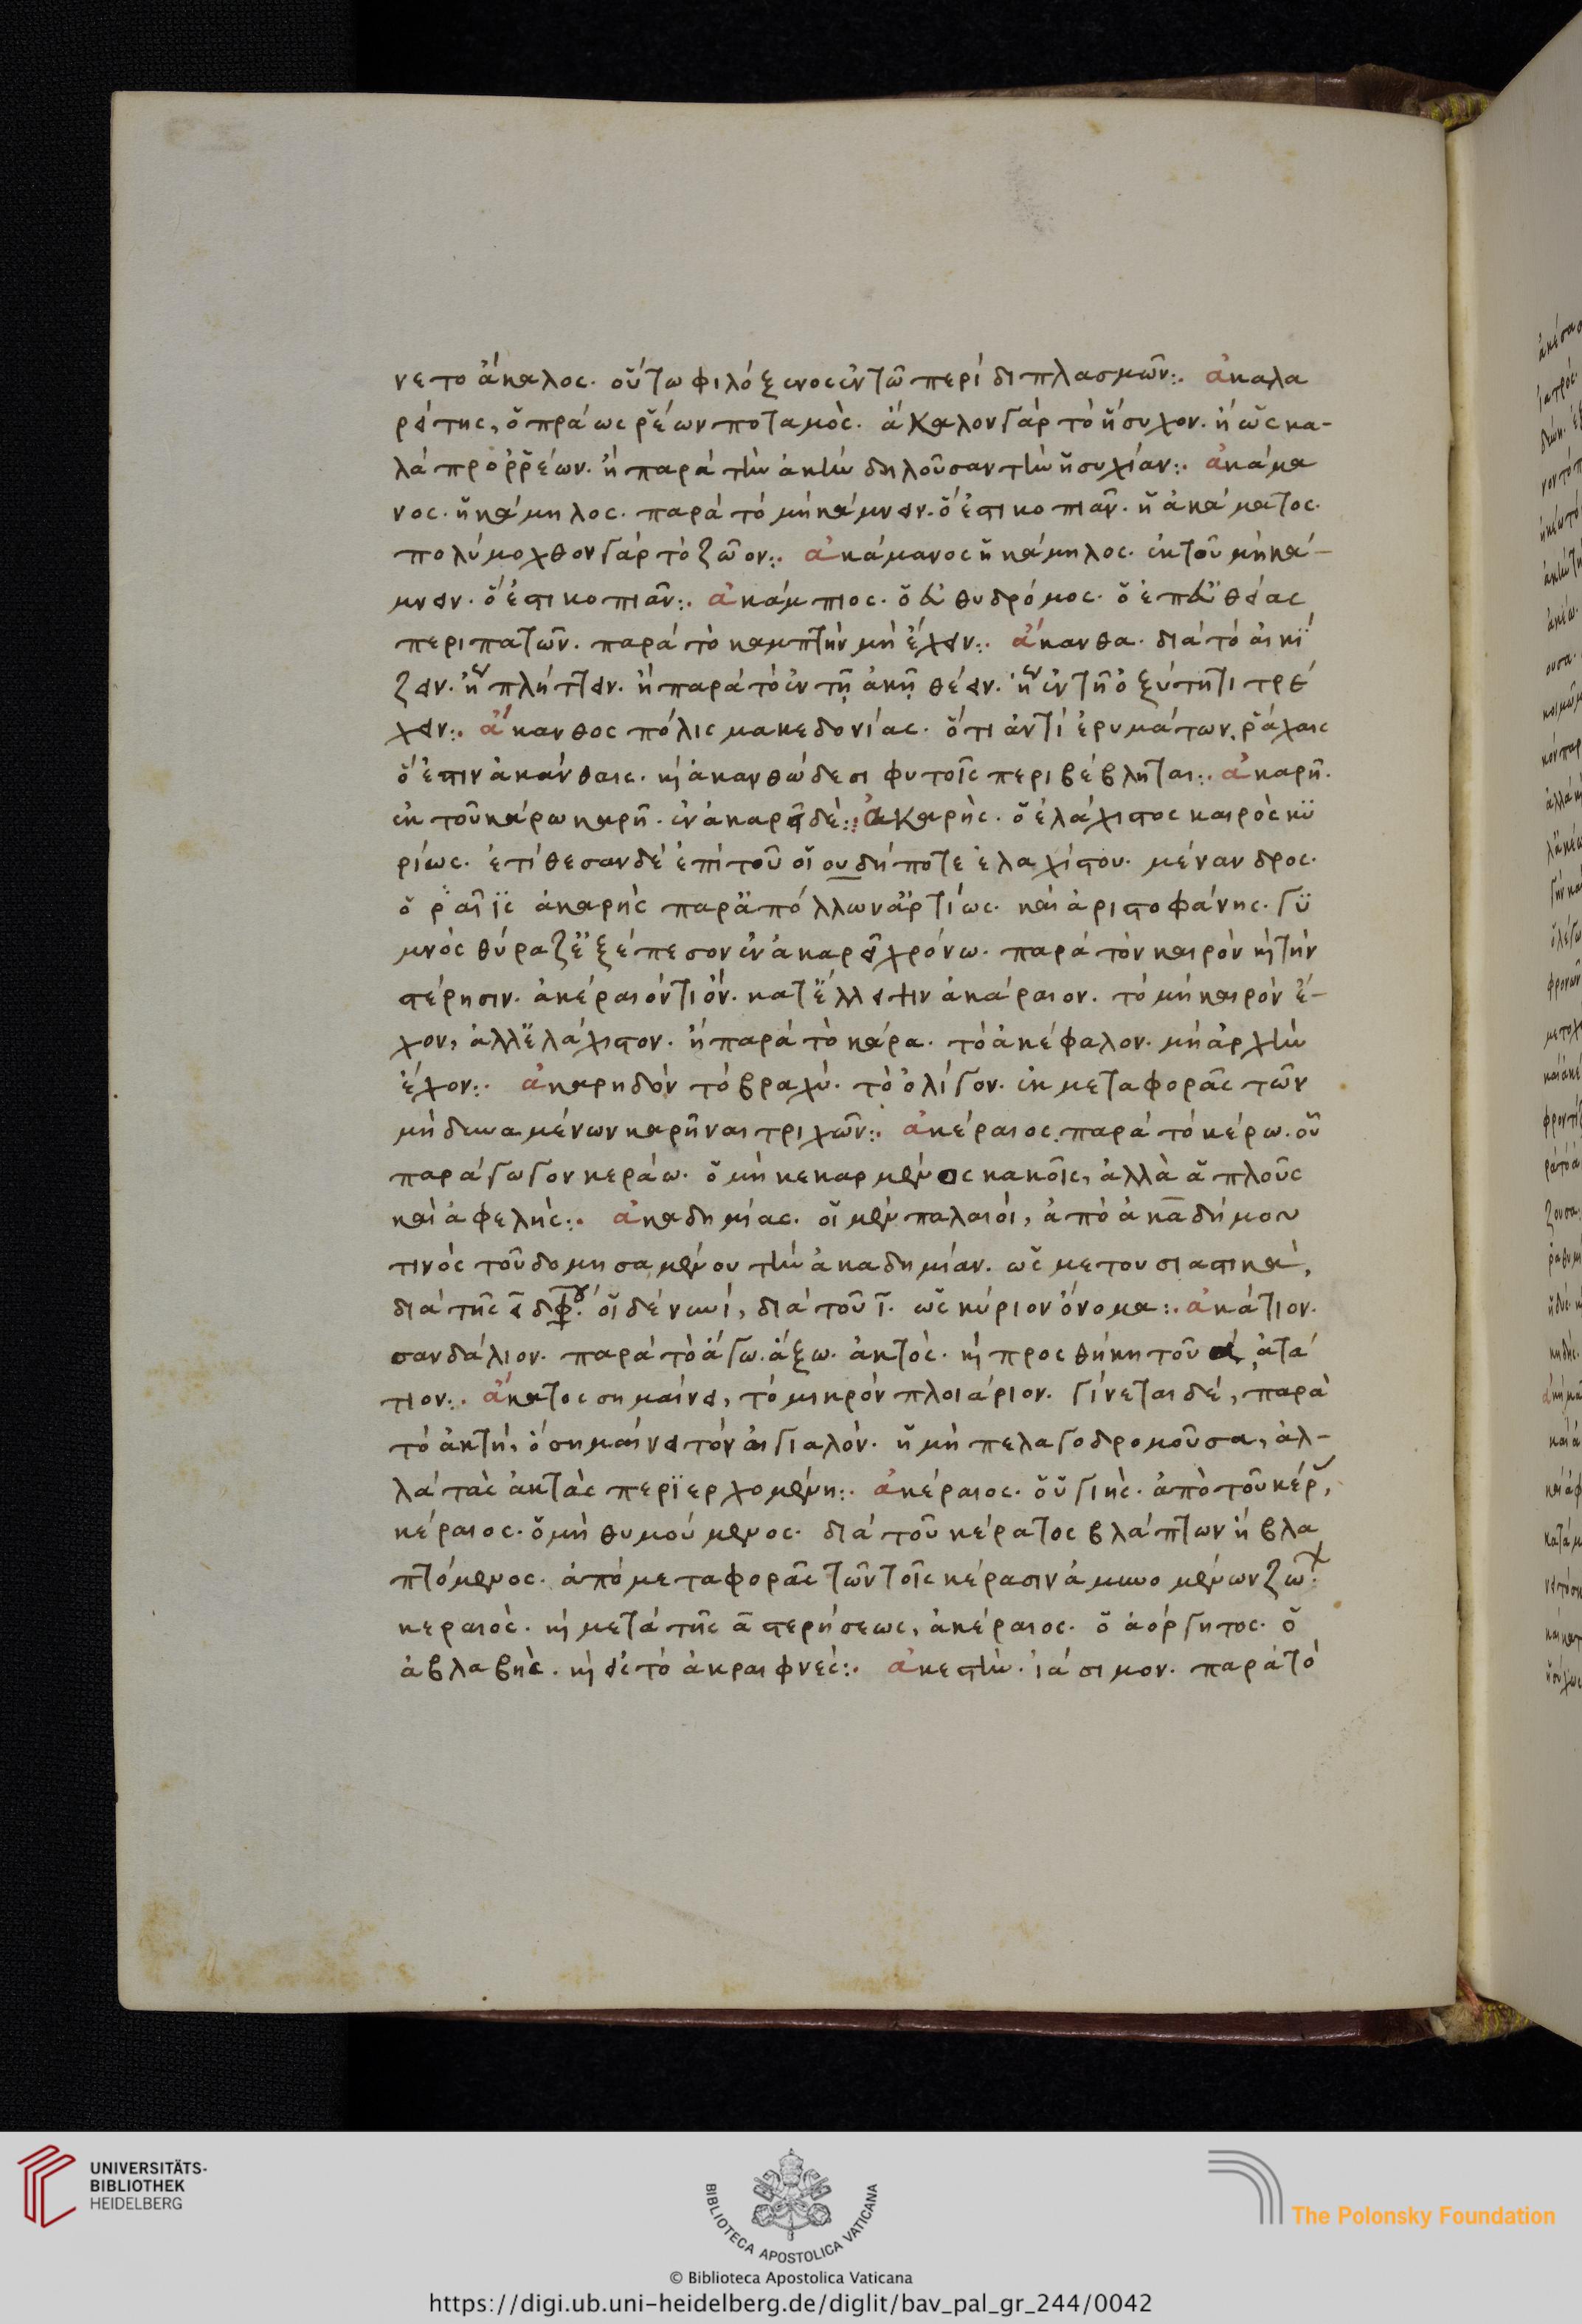 νετο ἄκαλος. οὕτω φιλόξενος ἐν τῷ περὶ διπλασμῶν:. ἀκαλα
ρείτης, ὁ πράως ῥέων ποταμὸς. ἄκαλον γὰρ τὸ ἥσυχον. ἢ ὡς κα-
λὰ προρρέων. ἢ παρὰ τὴν ἀκὴν δηλοῦσαν τὴν ἡσυχίαν:. ἀκάμα
νος. ἡ κάμηλος. παρὰ τὸ μὴ κάμνειν. ὅ ἐστι κοπιᾶν. ἢ ἀκάματος.
πολύμοχθον γὰρ τὸ ζῶον:. ἀκάμανος ἡ κάμηλος. ἐκ τοῦ μὴ κά-
μνειν. ὅ ἐστι κοπιᾶν:. ἀκάμπιος. ὁ εὐθυδρόμος. ὁ ἐπ' εὐθείας
περιπατῶν. παρὰ τὸ καμπτὴν μὴ ἔχειν:. ἄκανθα. διὰ τὸ αἰκί
ζειν. ἤγουν πλήττειν. ἢ παρὰ τὸ ἐν τῇ ἀκῇ θέειν. ἤγουν ἐν τῇ ὀξύτητι τρέ
χειν:. ἄκανθος πόλις μακεδονίας. ὅτι ἀντὶ ἐρυμάτων ῥάχαις
ὅ ἐστιν ἀκάνθαις. κὶ ἀκανθώδεσι φυτοῖς περιβέβληται:. ἀκαρῆ.
ἐκ τοῦ κάρω καρῆ. ἐν ἀκαρεῖ δὲ:. ἀκαρὴς. ὁ ἐλάχιστος καιρὸς κυ
ρίως. ἐτίθεσαν δὲ ἐπὶ τοῦ οἱουδήποτε ἐλαχίστου. μένανδρος.
καὶ ἀριστοφάνης. γυ
μνὸς θύραζ' ἐξέπεσον ἐν ἀκαρεῖ χρόνω. παρὰ τὸν καιρὸν κὶ τὴν
στέρησιν. ἀκέραιόν τι ὄν. κατ' ἔλλειψιν ἀκάραιον. τὸ μὴ καιρὸν ἔ-
χον, ἀλλ' ἐλάχιστον. ἢ παρὰ τὸ κάρα. τὸ ἀκέφαλον. μὴ ἀρχὴν
ἔχον:. ἀκαρηδὸν τὸ βραχὺ. τὸ ὀλίγον. ἐκ μεταφορᾶς τῶν
μὴ δυναμένων καρῆναι τριχῶν:. ἀκέραιος. παρὰ τὸ κέρω. οὗ
παράγωγον κεράω. ὁ μὴ κεκαρμένος κακοῖς, ἀλλὰ ἁπλοῦς
καὶ ἀφελὴς:. ἀκαδημίας. οἱ μὲν παλαιοὶ, ἀπὸ ἀκαδήμου
τινὸς τοῦ δομησαμένου τὴν ἀκαδημίαν. ὡς μετουσιαστικὰ,
διὰ τῆς ει διφθόγγου. οἱ δὲ νῦν, διὰ τοῦ ι. ὡς κύριον ὄνομα:. ἀκάτιον.
σανδάλιον. παρὰ τὸ ἄγω. ἄξω. ἀκτὸς. κὶ προσθήκη τοῦ α, ἀτά
τιον:. ἄκατος σημαίνει, τὸ μικρὸν πλοιάριον. γίνεται δὲ, παρὰ
τὸ ἀκτὴ, ὃ σημαίνει τὸν αἰγιαλὸν. ἡ μὴ πελαγοδρομοῦσα, ἀλ-
λὰ τὰς ἀκτὰς περιερχομένη:. ἀκέραιος. ὁ ὑγιὴς. ἀπὸ τοῦ κέρας,
κέραιος. ὁ μὴ θυμούμενος. διὰ τοῦ κέρατος βλάπτων ἢ βλα
πτόμενος. ἀπὸ μεταφορᾶς τῶν τοῖς κέρασιν ἀμυνομένων ζώων.
κεραιὸς. κὶ μετὰ τῆς α στερήσεως, ἀκέραιος. ὁ ἀόργητος. ὁ
ἀβλαβὴς. κὶ εἰς τὸ ἀκραιφνὲς:. ἀκεστὴν. ἰάσιμον. παρὰ τὸ
UNIVERSITÄTS-
BIBLIOTHEK
HEIDELBERG
BIBLIOTECA APOSTOLICA VATICANA
The Polonsky Foundation
© Biblioteca Apostolica Vaticana
https://digi.ub.uni-heidelberg.de/diglit/bav_pal_gr_244/0042